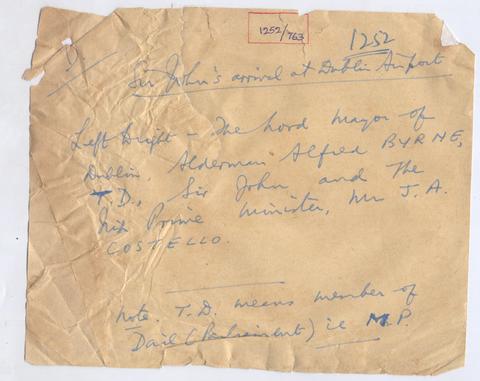 1252/763
1252
D/
Sir John's arrival at Dublin Airport
Left to right - The Lord Mayor of
Dublin, Alderman Alfred BYRNE,
T.D., Sir John and The
Prime Minister, Mr J.A.
COSTELLO.
Note. T.D. means member of
Dail (Parliament) ie M.P.